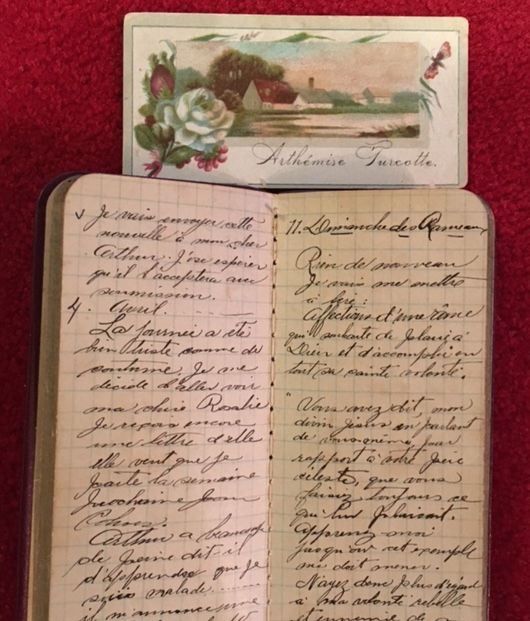 Arthémise Turcotte.
Je vais envoyer cette
nouvelle à mon cher
Arthur. J'ose espérer
qu'il l'acceptera avec
soumission.
4. Avril.
La journée a été
bien triste comme de
coutume. Je me
décide d'aller voir
ma chère Rosalie
Je reçois encore
une lettre d'elle
elle veut que je
parte la semaine
prochaine pour
Cohoes.
Arthur a beaucoup
de peine dit-il
d'apprendre que je
suis malade
il m'annonce
11. Dimanche des Rameaux
Rien de nouveau
Je vais me mettre
à
Affections d'une âme
qui souhaite de plaire à
Dieu et d'accomplir en
tout sa sainte volonté.
"Vous avez dit, mon
divin Jésus en parlant
de vous-même, par
rapport à votre Père
céleste, que vous
faisiez toujours ce
qui lui plaisait.
Apprenez-moi
jusqu'où cet exemple
me doit mener.
N'ayez donc plus d'égard
à ma volonté rebelle
et ennemie de